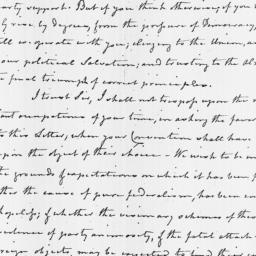 party support. But if you think otherwise; if you
by degrees, from the pressure of Democracy,
will co-operate with you; clinging to the Union, as
our political Salvation; and trusting to the
final triumph of correct principles.
I trust Sir, I shall not trespass upon the
occupations of your time, in asking the favor
to this Letter, when your Convention shall have
upon the object of their choice - We wish to be in
the grounds of expectations on which it has been
the cause of pure federalism, has been
hopeless; if whether the visionary schemes of
virulence of party animosity, if the fatal attach
foreign objects, may be expected to